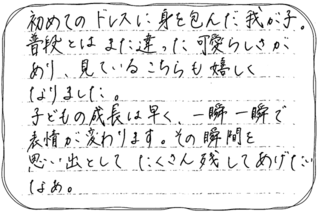 初めてのドレスに身を包んだ我が子。
普段とはまた違った可愛らしさが
あり、見ているこちらも嬉しく
なりました。
子どもの成長は早く、一瞬一瞬で
表情が変わります。その瞬間を
思い出として たくさん残してあげたい
なぁ。